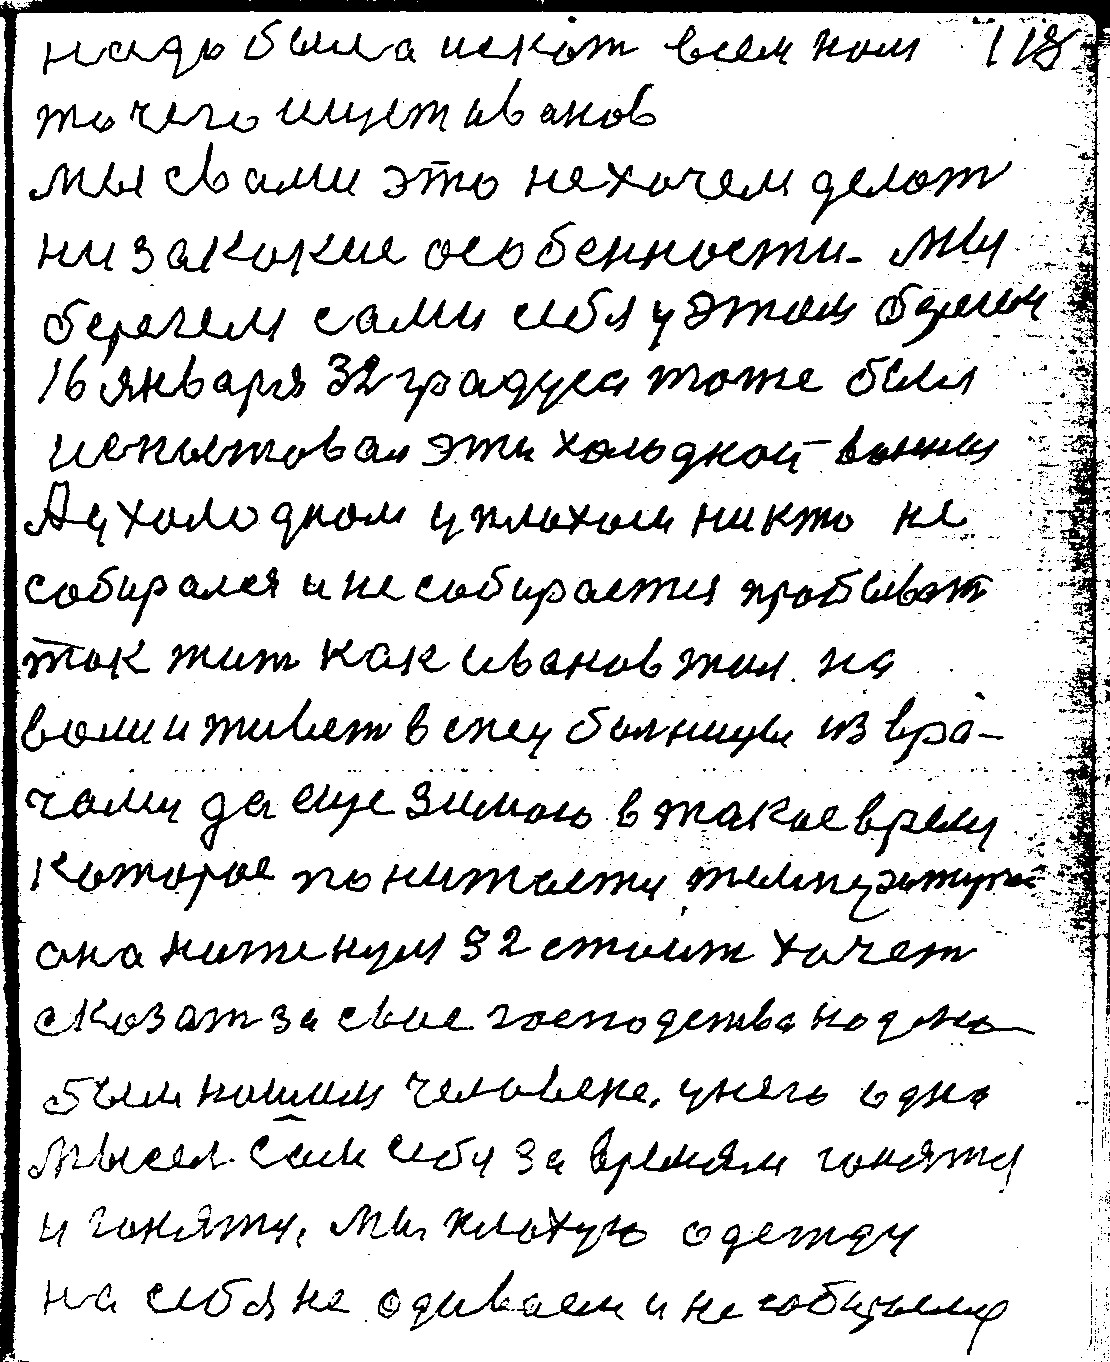 надо была искат всем нам 118
то чего ищет иванов
мы свами это нехочем делат
низакокие особенности. Мы
берегем сами себя у этом берегем
16 января 32 градуса тоже был
испытовал эти холодной ванны
А у холодном у плохом никто не
собирался и не собирается пробыват
так жит как иванов жил на
воли и живет в спец болницы из вра-
чами да еще зимою в такое время
Которое по читаету температура
она ниже нуля 32 стоит хочет
сказат за свое господства надею
былым нашим человеке. у него одна
мысел. сам себя за временям гонятся
и гоняту, мы плохую одежду
на себя не одиваем и не собираемся